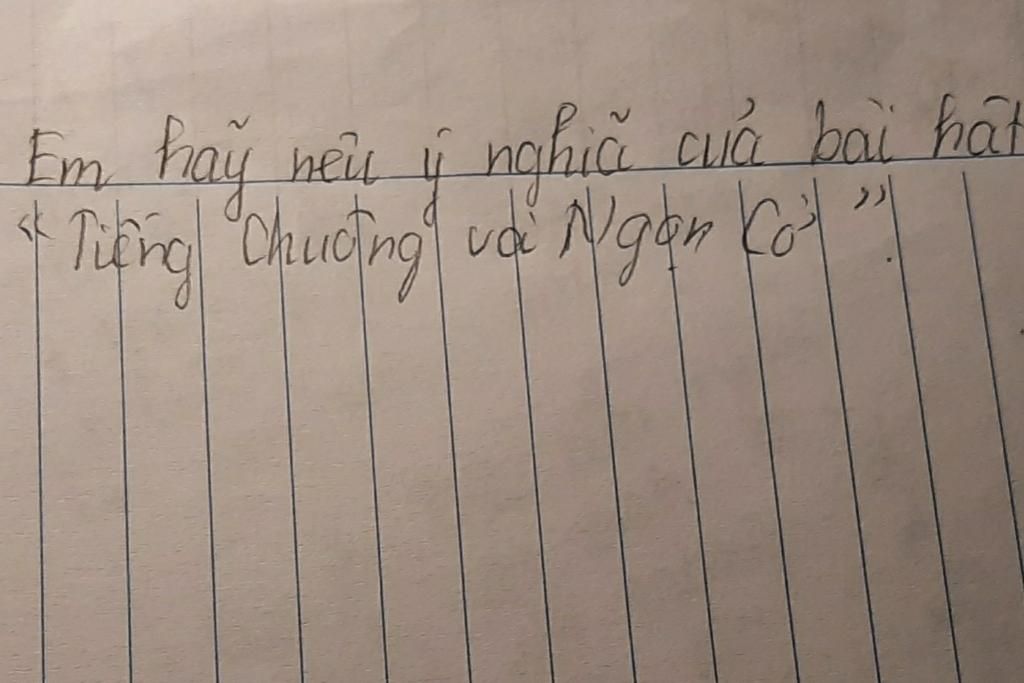 Em hãy nêu ý nghĩa của bài hát
"Tiếng Chuông với Ngọn Cờ".